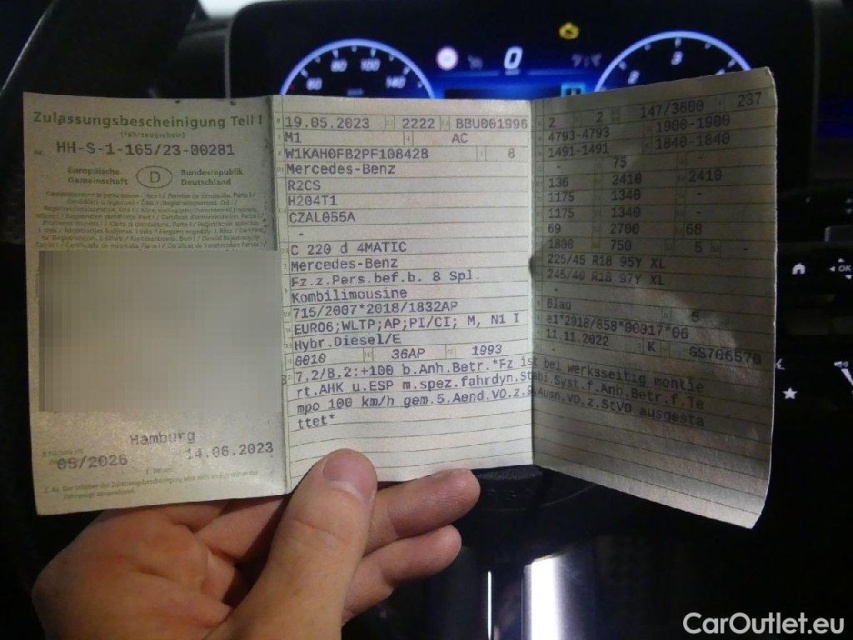 Zulassungsbescheinigung Teil I
(Fahrzeugschein)
Nr. HH-S-1-165/23-00281
Europäische Gemeinschaft D Bundesrepublik Deutschland
Hamburg
09/2026 14.06.2023
19.05.2023 2222 BBU001996
M1 AC
W1KAH0FB2PF108428 8
Mercedes-Benz
R2CS
H204T1
CZAL055A
-
C 220 d 4MATIC
Mercedes-Benz
Fz.z.Pers.bef.b. 8 Spl.
Kombilimousine
715/2007*2018/1832AP
EURO6;WLTP;AP;PI/CI; M, N1 I
Hybr.Diesel/E
0010 36AP 1993
7.2/8.2:+100 b.Anh.Betr.*Fz ist bei werksseitig montie
rt.AHK u.ESP m.spez.fahrdyn.Stabi.Syst.f.Anh.Betr.f.Te
mpo 100 km/h gem.5.Aend.VO.z.9.Ausn.VO.z.StVO ausgesta
ttet*
2 2 147/3600 237
4793-4793 1900-1900
1491-1491 1840-1840
- 75 -
136 2410 2410
1175 1340 -
1175 1340 -
69 2700 68
1800 750 5 -
225/45 R18 95Y XL
245/40 R18 97Y XL
-
Blau 5
e1*2018/858*00017*06
11.11.2022 K
0 80 100 140
2 3
OK
CarOutlet.eu